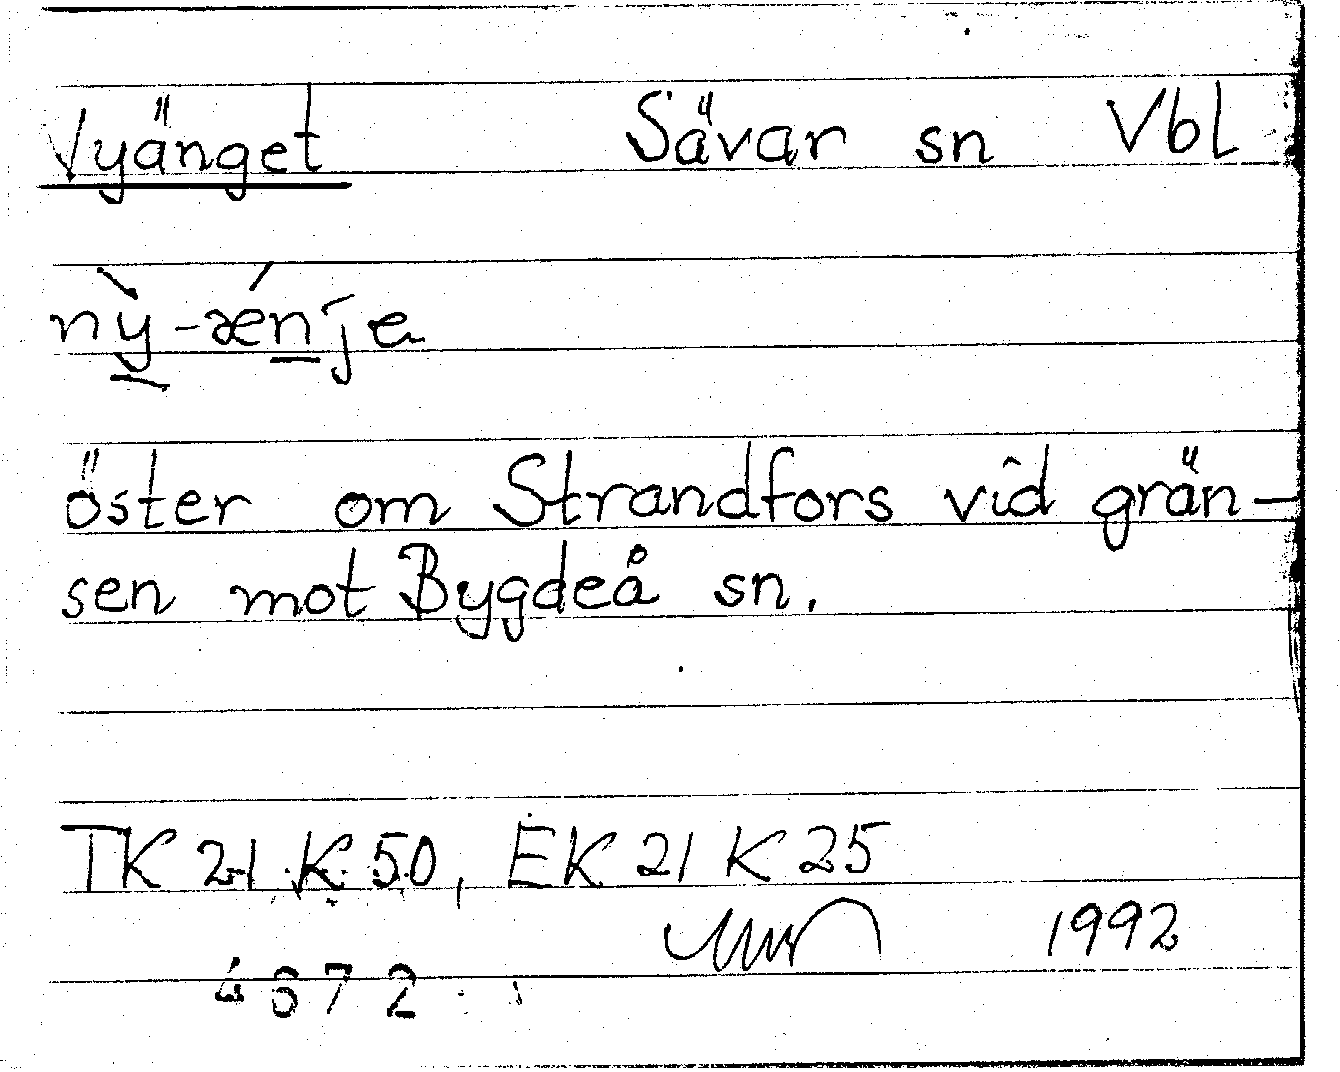 Nyänget Sävar sn Vbl
nỳ-ǽnje
öster om Strandfors vid grän-
sen mot Bygdeå sn.
TK 21 K 50, EK 21 K 25
1992
4672